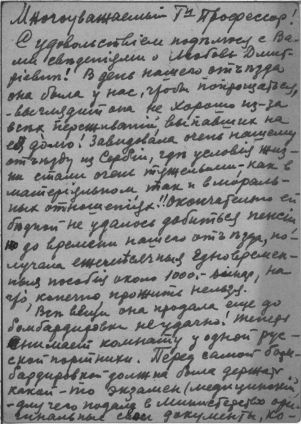 Многоуважаемый Гнъ Профессор!
С удовольствіем подѣлюсь с Ва-
ми свѣдѣніями о Любовь Дмит-
ріевнѣ! В день нашего отъѣзда
она была у нас, чтобы попрощаться,
- выглядит она не хорошо из-за
всѣх переживаній, выпавших на
ея долю! Завидовала очень нашему
отъѣзду из Сербіи, гдѣ условія жиз-
ни стали очень тяжелыми - как в
матеріальном так и в мораль-
ных отношеніях!! Окончательно ей
бѣдной не удалось добиться пенсіи
до времени нашего отъѣзда, по-
лучала ежемѣсячныя единовремен-
ныя пособія около 1000.- динар, на
что конечно прожить нельзя.
Всѣ вещи она продала еще до
бомбардировки неудачно! теперь
снимает комнату у одной рус-
ской портнихи. Перед самой бом-
бардировкой должна была держат
какой-то экзамен (медицинскій,
- для чего подала в Министерство ори-
гинальные свои документы, ко-